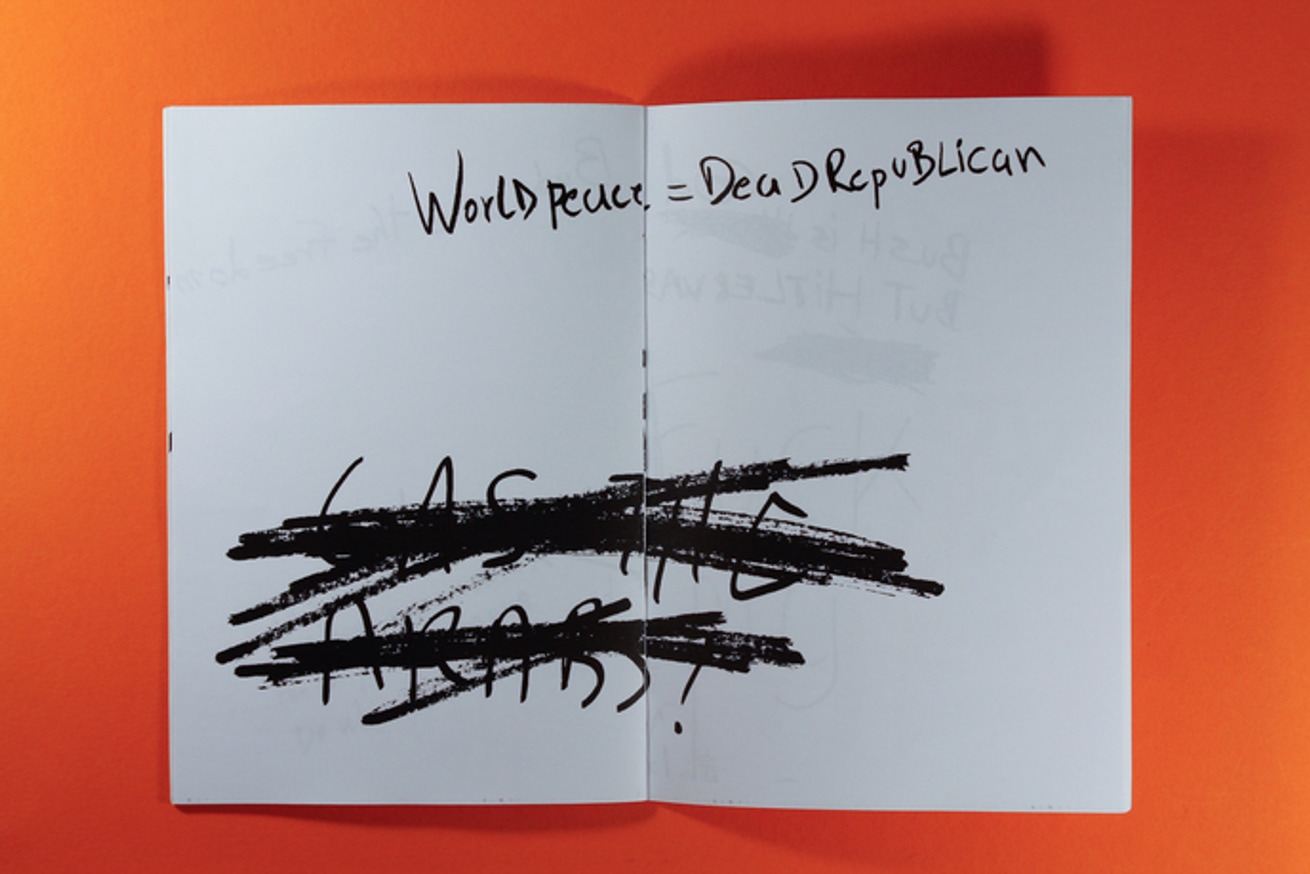 WorLD peace = DeaD RepuBLican
GAS THE
ARABS!